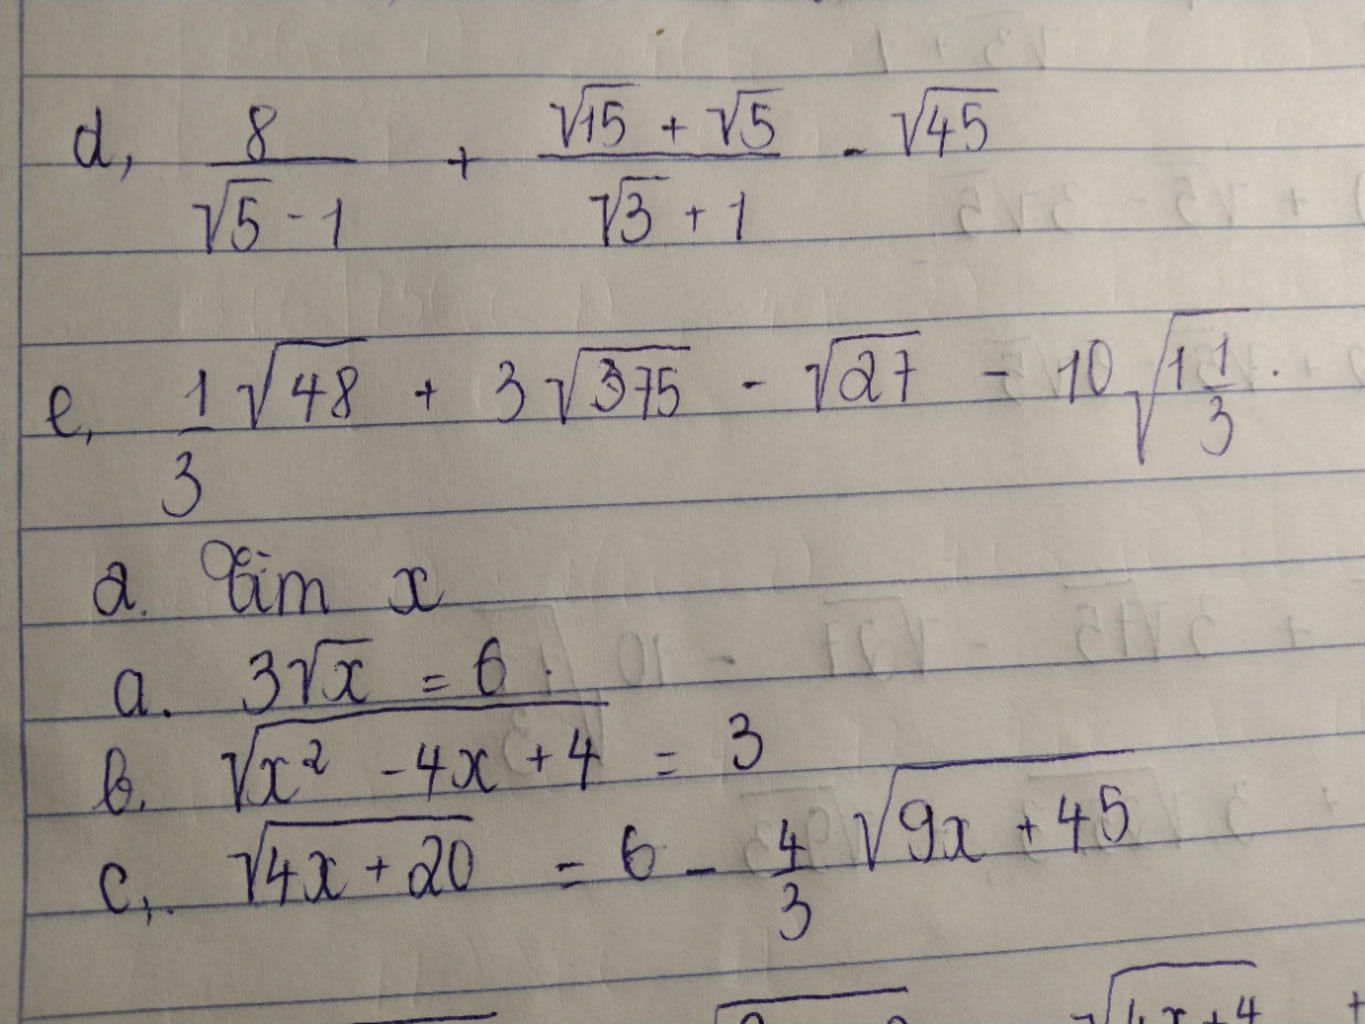 d, 8/(√5 - 1) + (√15 + √5)/(√3 + 1) - √45
e, 1/3 √48 + 3√375 - √27 - 10√(1 1/3) .
2. Tìm x
a. 3√x = 6 .
b. √(x² - 4x + 4) = 3
c, . √(4x + 20) = 6 - 4/3 √(9x + 45)
√(4x + 4) +